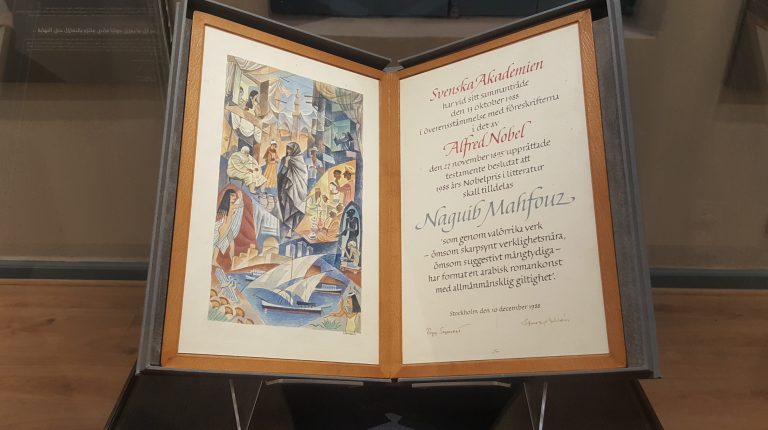 Svenska Akademien
har vid sitt sammanträde
den 13 oktober 1988
i överensstämmelse med föreskrifterna
i det av
Alfred Nobel
den 27 november 1895 upprättade
testamente beslutat att
1988 års Nobelpris i litteratur
skall tilldelas
Naguib Mahfouz
'som genom valörrika verk
– ömsom skarpsynt verklighetsnära,
ömsom suggestivt mångtydiga –
har format en arabisk romankonst
med allmänmänsklig giltighet'.
Stockholm den 10 december 1988